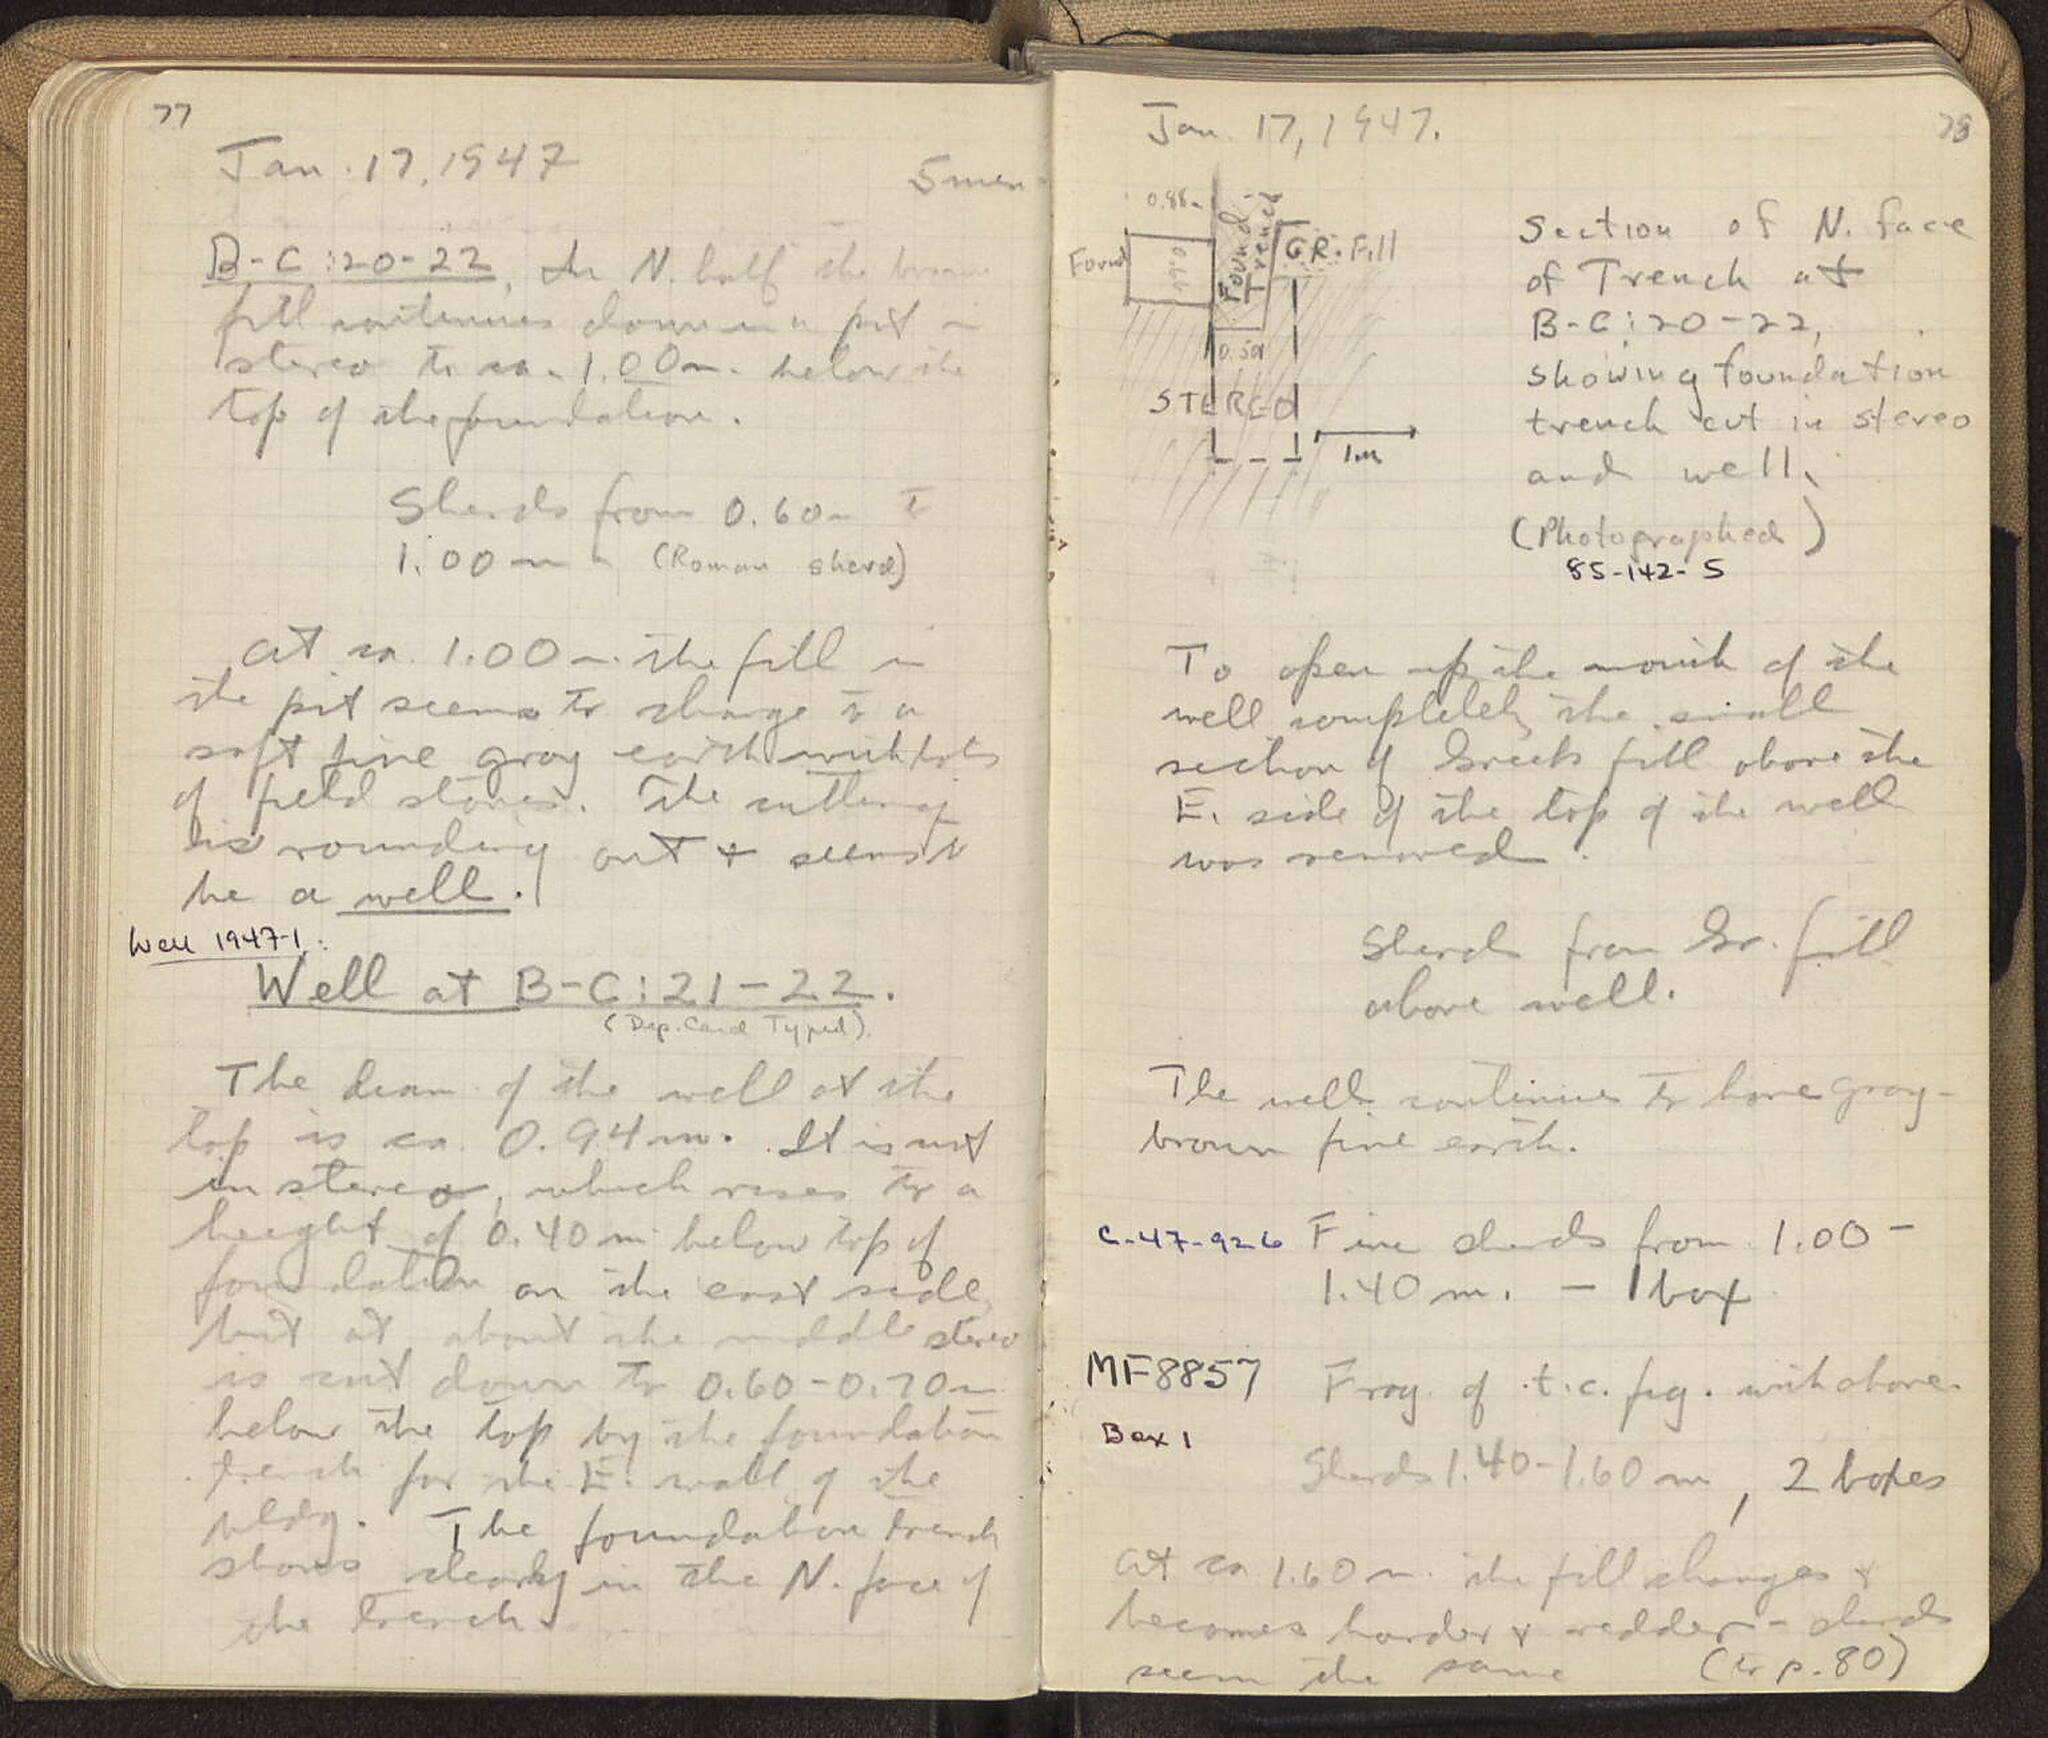 77
Jan. 17, 1947
5 men
B-C:20-22, In N. half the brown
fill continues down in a pit in
stereo to ca. 1.00m. below the
top of the foundation.
Sherds from 0.60m to
1.00m (Roman sherd)
At ca. 1.00m. the fill in
the pit seems to change to a
soft fine gray earth with lots
of field stones. The cutting
is rounding out + seems to
be a well.
Well 1947-1.
Well at B-C:21-22.
(Dep. Card Typed).
The diam. of the well at the
top is ca. 0.94m. It is cut
in stereo, which rises to a
height of 0.40m below top of
foundation on the east side,
but at about the middle stereo
is cut down to 0.60-0.70m
below the top by the foundation
trench for the E. wall of the
bldg. The foundation trench
shows clearly in the N. face of
the trench.
78
Jan. 17, 1947.
0.88m
Found.
0.66
Found. Trench
GR. Fill
0.50
STEREO
1m
Section of N. face
of Trench at
B-C:20-22,
showing foundation
trench cut in stereo
and well.
(Photographed)
85-142-5
To open up the mouth of the
well completely the small
section of Greek fill above the
E. side of the top of the well
was removed.
Sherds from Gr. fill
above well.
The well continues to have gray-
brown fine earth.
C-47-926 Fine sherds from 1.00-
1.40m. - 1 box
MF8857 Frag. of t.c. fig. with above.
Box 1
Sherds 1.40-1.60m, 2 boxes
At ca 1.60m. the fill changes +
becomes harder + redder - sherds
seem the same (to p. 80)